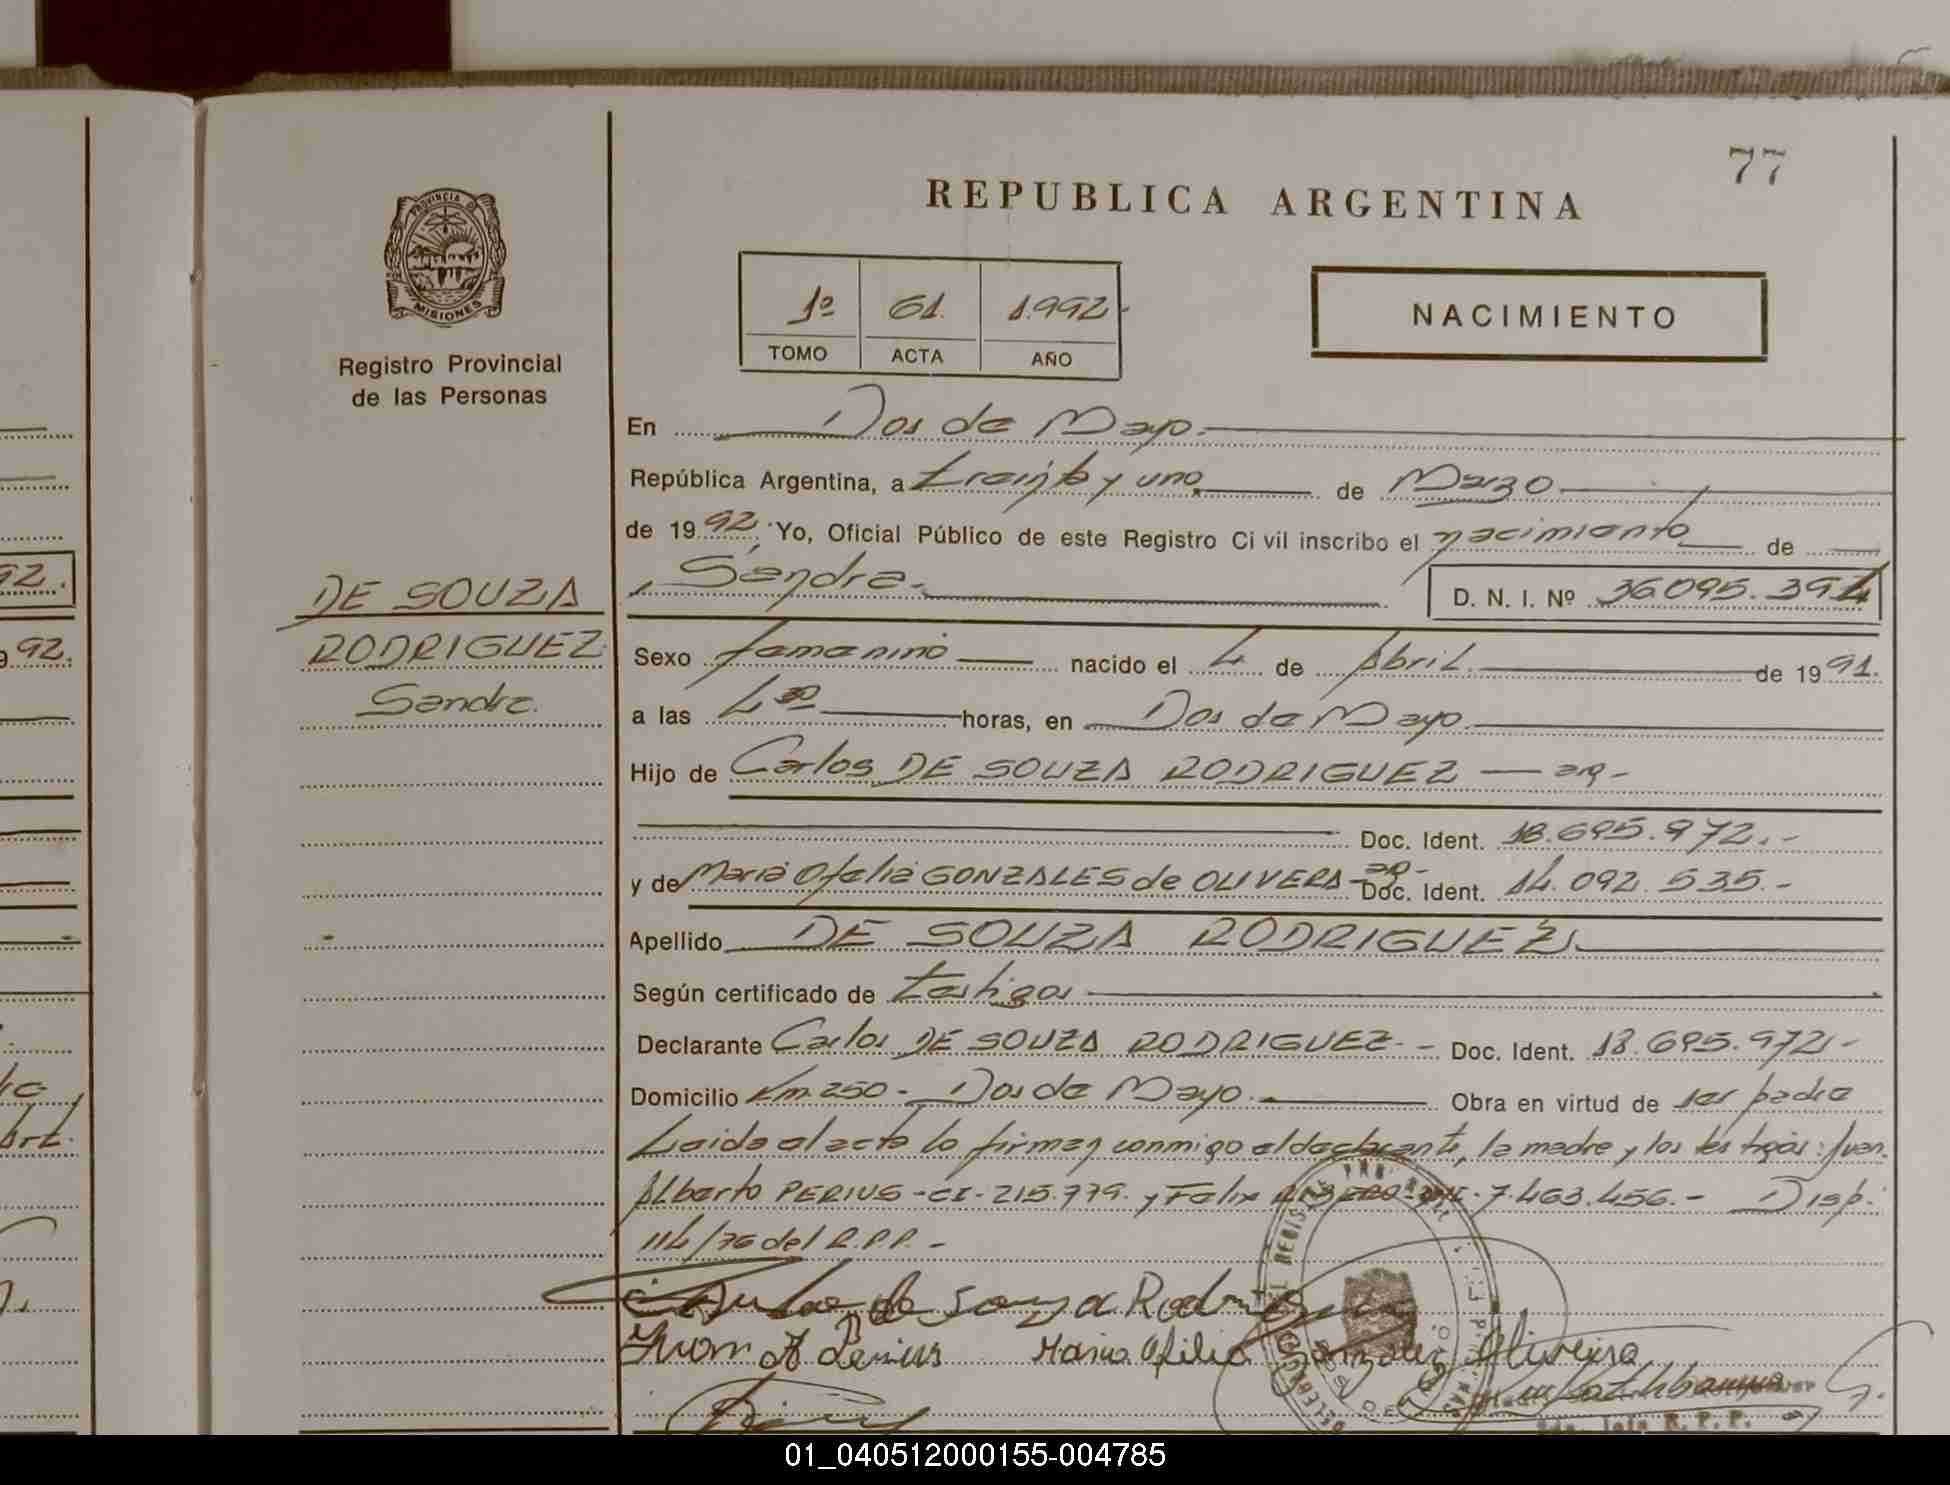 77
REPUBLICA ARGENTINA
PROVINCIA DE
MISIONES
Registro Provincial
de las Personas
1º 61. 1.992-
TOMO ACTA AÑO
NACIMIENTO
En Dos de Mayo.-
República Argentina, a treinta y uno de Marzo
de 1992, Yo, Oficial Público de este Registro Civil inscribo el nacimiento de
Sandra. D. N. I. Nº 36.095.394
DE SOUZA
RODRIGUEZ
Sandra.
Sexo femenino nacido el 4 de Abril. de 1991.
a las 4 30 horas, en Dos de Mayo.
Hijo de Carlos DE SOUZA RODRIGUEZ — arg-
Doc. Ident. 18.695.972.-
y de Maria Ofelia GONZALES de OLIVERA - arg- Doc. Ident. 14.092.535.-
Apellido DE SOUZA RODRIGUEZ
Según certificado de testigos
Declarante Carlos DE SOUZA RODRIGUEZ - Doc. Ident. 18.695.972.-
Domicilio Km. 250 - Dos de Mayo. Obra en virtud de ser padre
Leida el acta lo firman conmigo el declarante, la madre y los testigos: Juan
Alberto PERIUS - CI - 215.779. y Felix 7.463.456.- Disp.
114/76 del R.P.P. -
de Souza Rodriguez
Juan A Perius Maria Ofilia Gonzalez Oliveira
R. P. P.
92.
92.
01_040512000155-004785